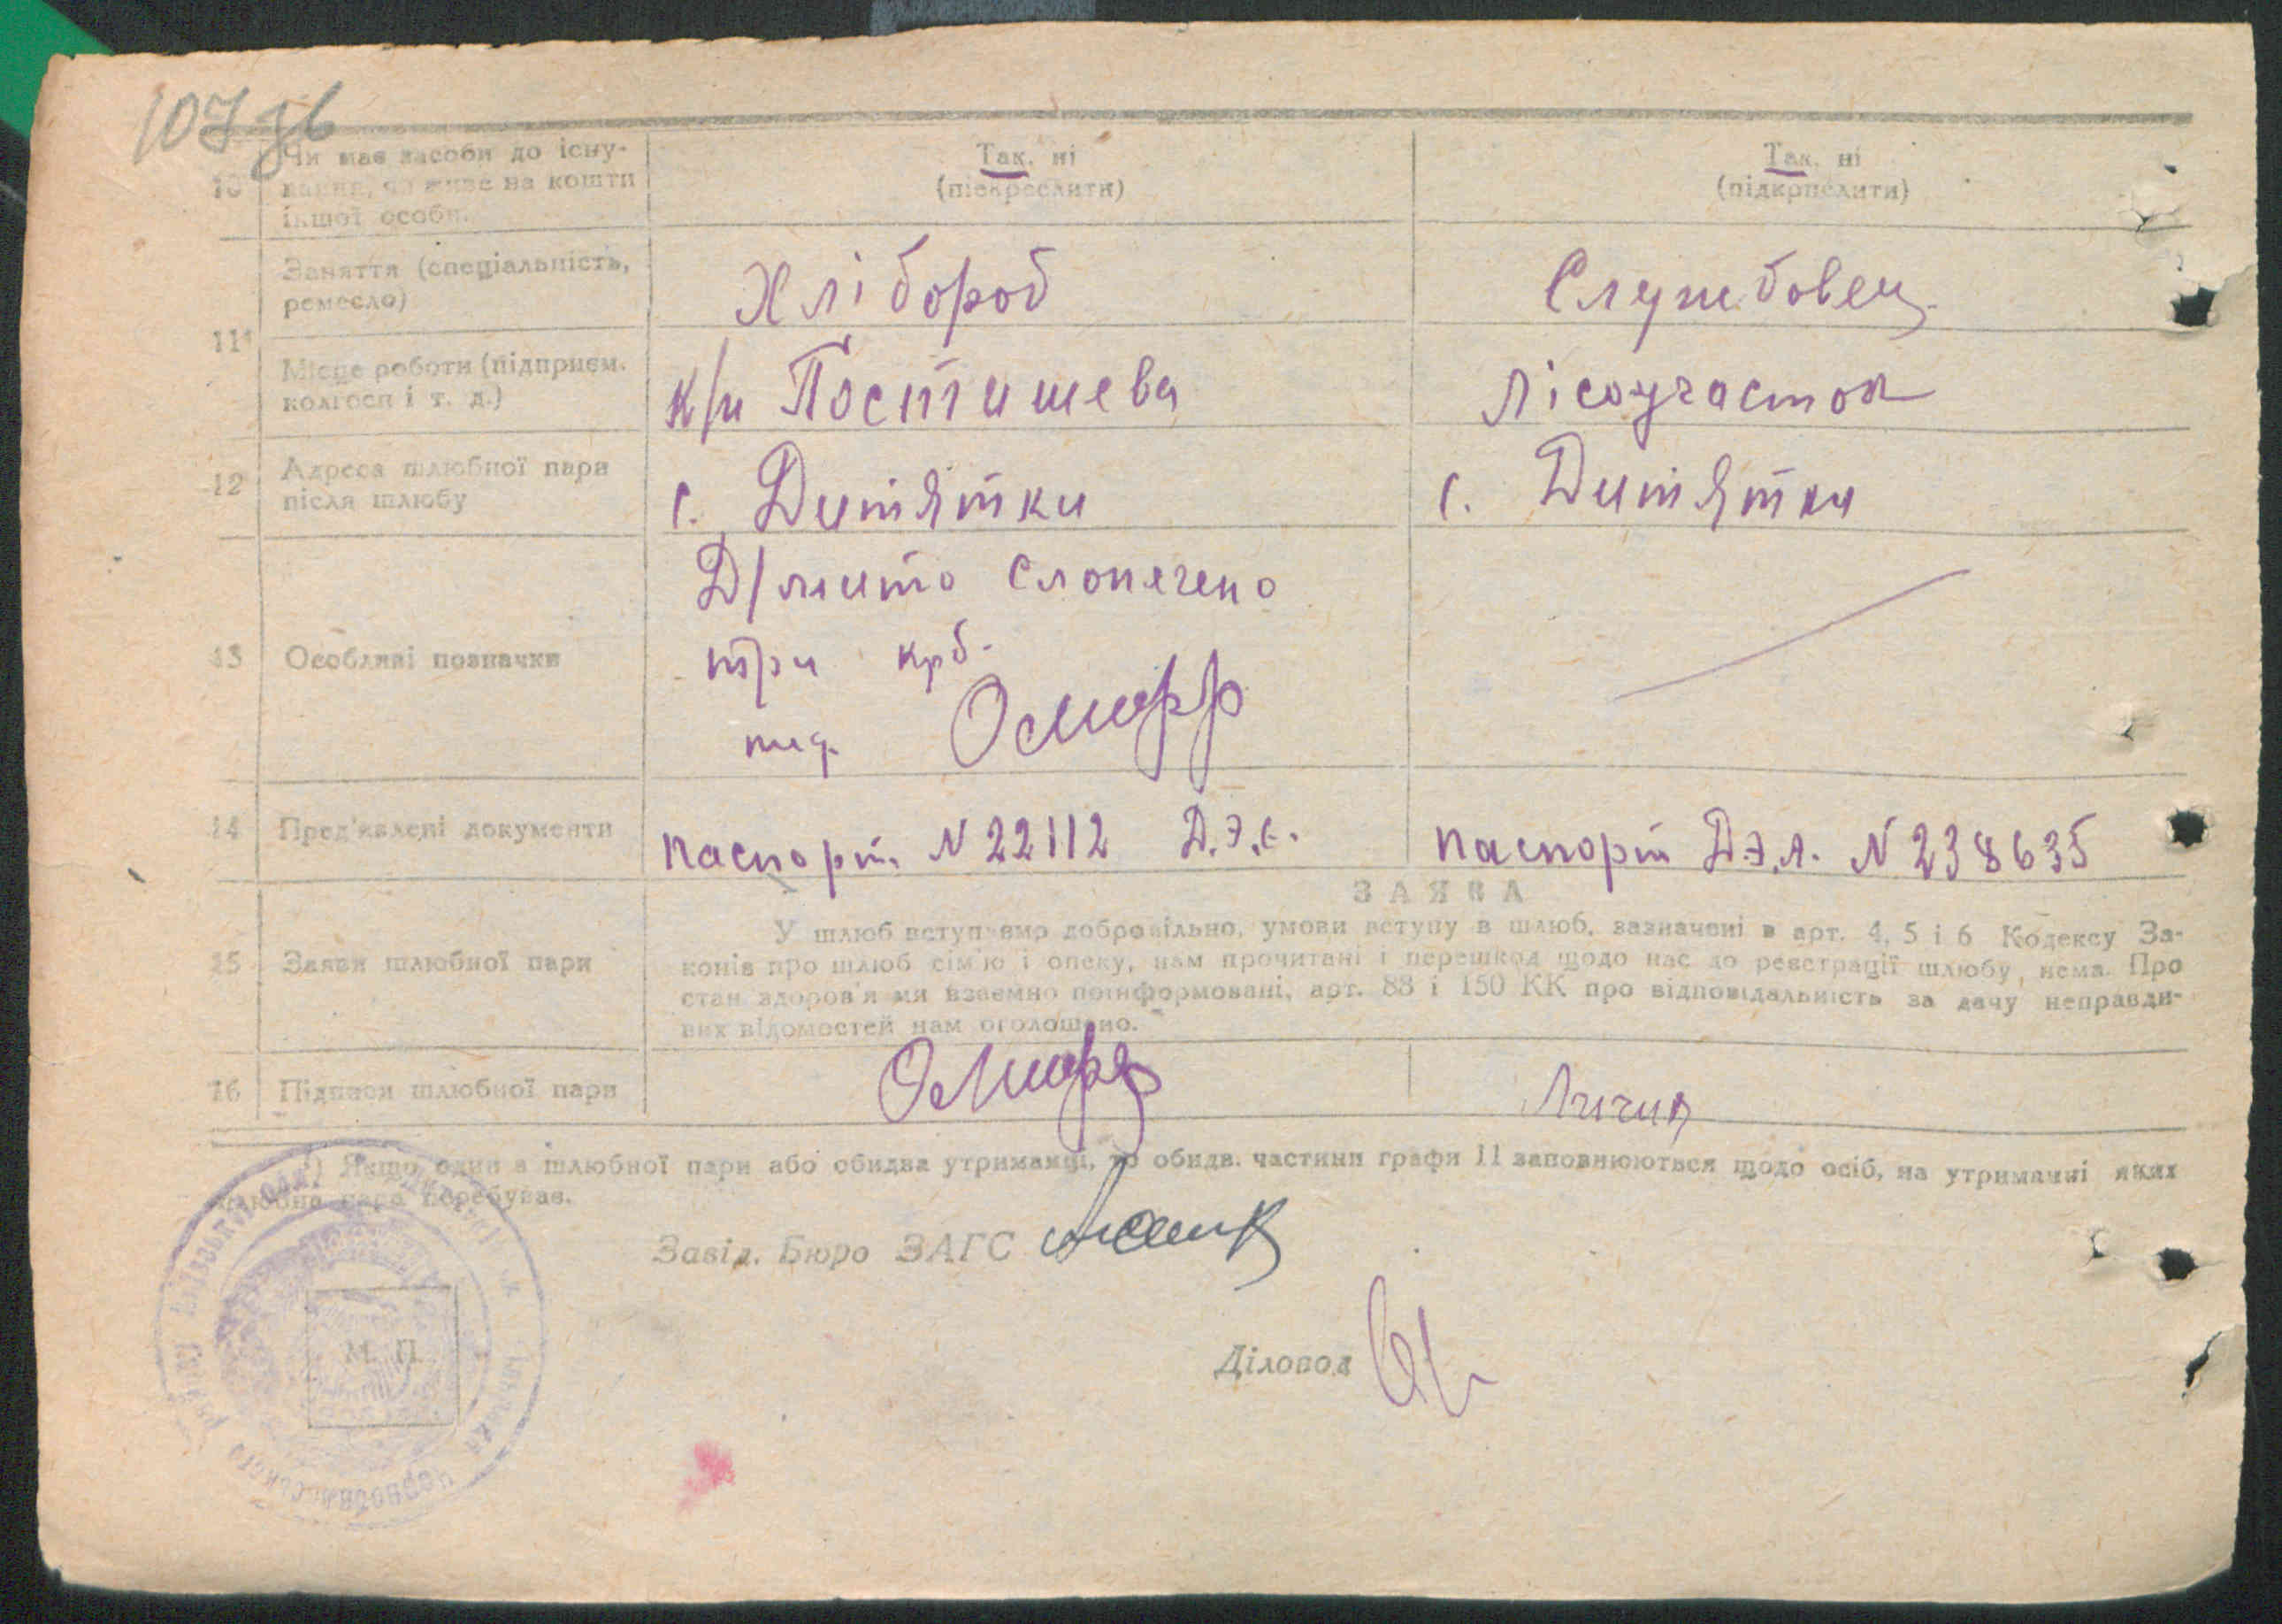 107 зв
Чи має засоби до існу-
10 вання, чи живе на кошти
іншої особи.
Так, ні
(підкреслити)
Так, ні
(підкреслити)
11¹ Заняття (спеціальність,
ремесло)
Хлібороб
Службовец
Місце роботи (підприєм.
колгосп і т. д.)
к/и Постишева
Лісоучасток
12 Адреса шлюбної пари
після шлюбу
с. Дитятки
с. Дитятки
13 Особливі позначки
Д/мито сплачено
три крб.
14 Пред'явлені документи
паспорт N 22112 Д.Э.С.
паспорт Д.Э.Л. N 238635
15 Заяви шлюбної пари
ЗАЯВА
У шлюб вступаємо добровільно, умови вступу в шлюб, зазначені в арт. 4, 5 і 6 Кодексу За-
конів про шлюб сім'ю і опеку, нам прочитані і перешкод щодо нас до реєстрації шлюбу, нема. Про
стан здоров'я ми взаємно поінформовані, арт. 88 і 150 КК про відповідальність за дачу неправди-
вих відомостей нам оголошено.
16 Підписи шлюбної пари
¹) Якщо один з шлюбної пари або обидва утриманці, то обидв. частини графи 11 заповнюються щодо осіб, на утриманні яких
шлюбна пара перебуває.
Завід. Бюро ЗАГС
М. П.
Діловод